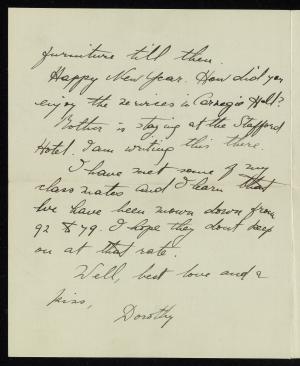 furniture till then.
Happy New Year. How did you
enjoy the services in Carnegie Hall?
Mother is staying at the Stafford
Hotel. I am writing this there.
I have met some of my
class mates and I learn that
we have been mown down from
92 to 79. I hope they dont keep
on at that rate.
Well, best love and a
kiss,
Dorothy